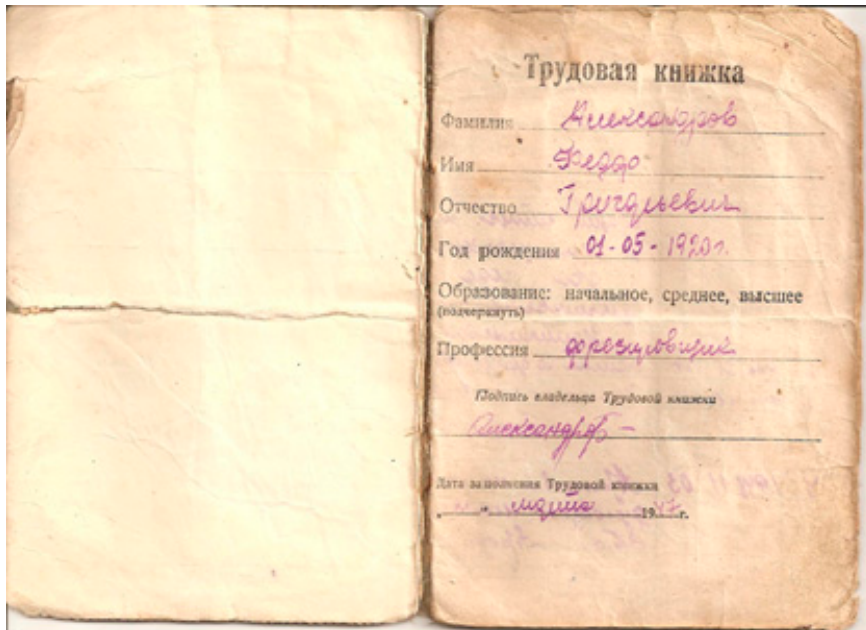 Трудовая книжка
Фамилия Александров
Имя Федор
Отчество Григорьевич
Год рождения 01-05-1920г.
Образование: начальное, среднее, высшее
(подчеркнуть)
Профессия фрезеровщик
Подпись владельца Трудовой книжки
Александров
Дата заполнения Трудовой книжки
" " марта 1947г.